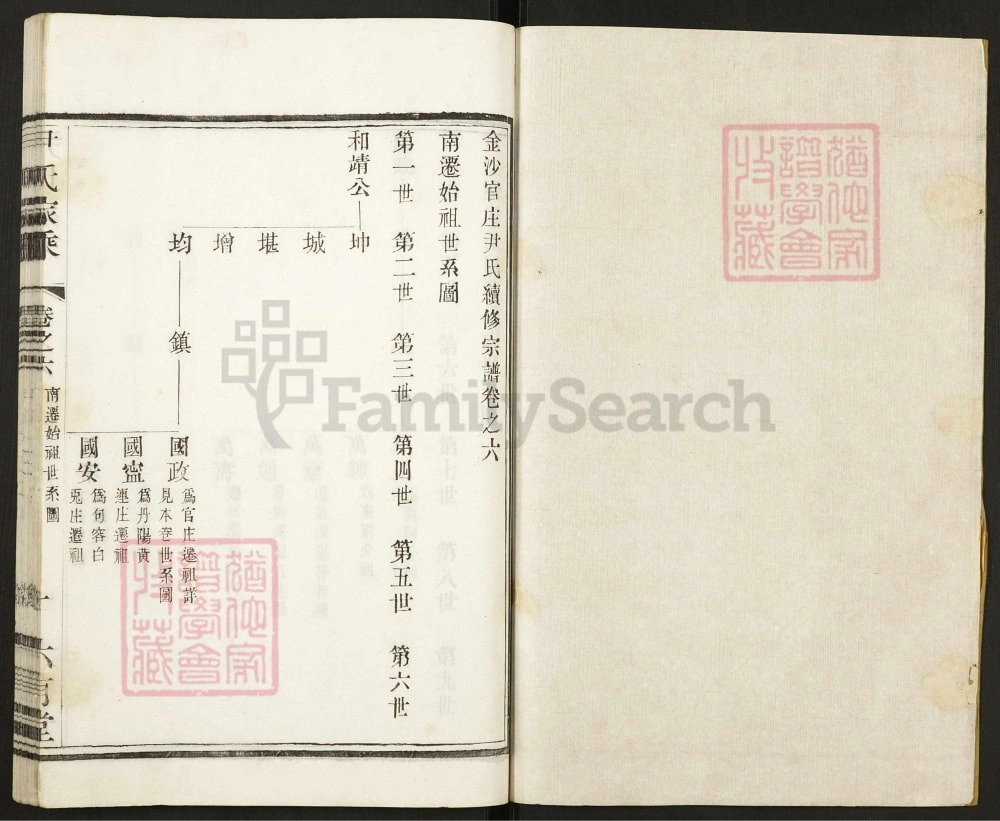 金沙官庄尹氏續修宗譜卷之六
南遷始祖世系圖
第一世 第二世 第三世 第四世 第五世 第六世
和靖公 坤
城
堪
增
均 鎮 國政 爲官庄遷祖詳
見本卷世系圖
國寧 爲丹陽黃
連庄遷祖
國安 爲句容白
兎庄遷祖
尹氏家乘 卷之六 南遷始祖世系圖 一
FamilySearch